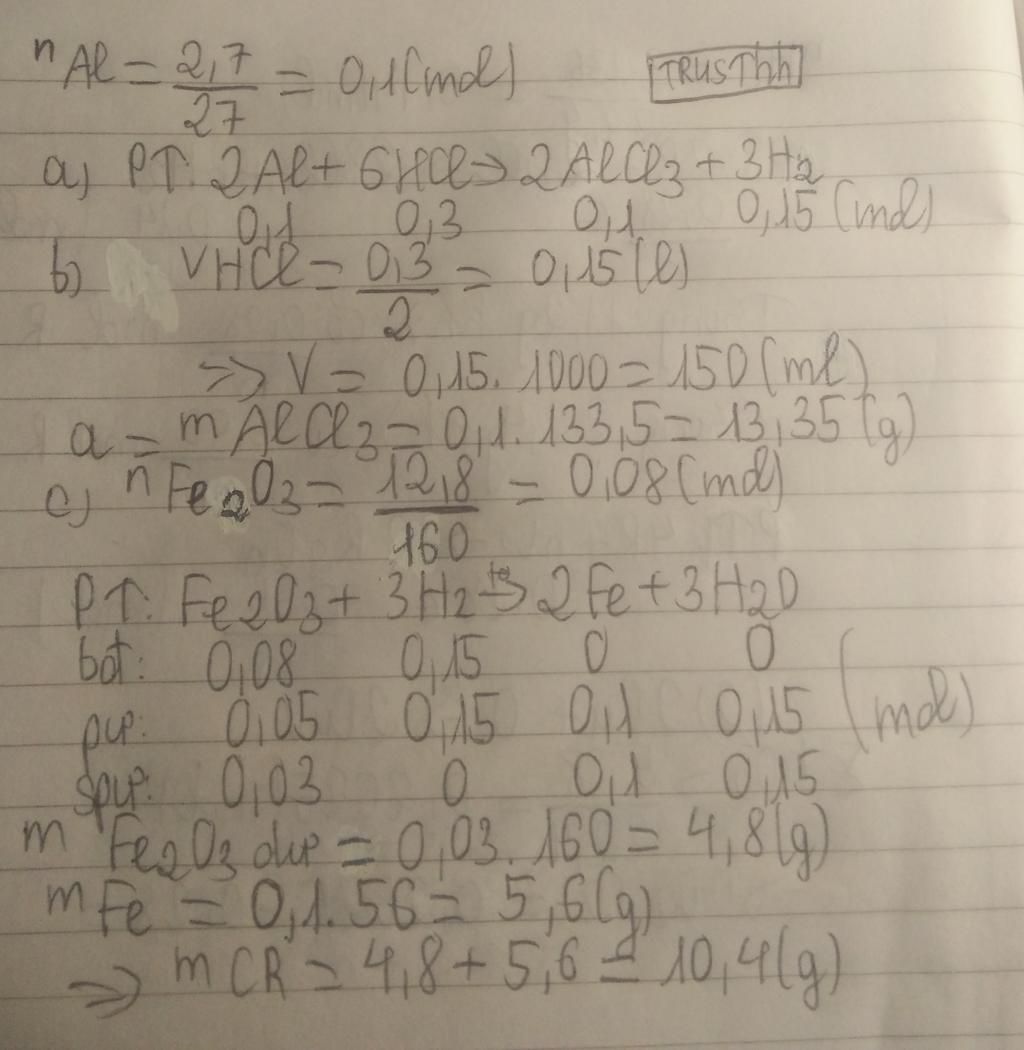 nAl = 2,7/27 = 0,1(mol) TRUSThh
a) PT: 2Al + 6HCl → 2AlCl3 + 3H2
0,1 0,3 0,1 0,15 (mol)
b) VHCl = 0,3/2 = 0,15(l)
=> V = 0,15.1000 = 150(ml)
a = mAlCl3 = 0,1.133,5 = 13,35(g)
c) nFe2O3 = 12,8/160 = 0,08(mol)
PT: Fe2O3 + 3H2 -to-> 2Fe + 3H2O
bđ: 0,08 0,15 0 0
pư: 0,05 0,15 0,1 0,15 (mol)
spư: 0,03 0 0,1 0,15
mFe2O3 dư = 0,03.160 = 4,8(g)
mFe = 0,1.56 = 5,6(g)
=> mCR = 4,8 + 5,6 = 10,4(g)